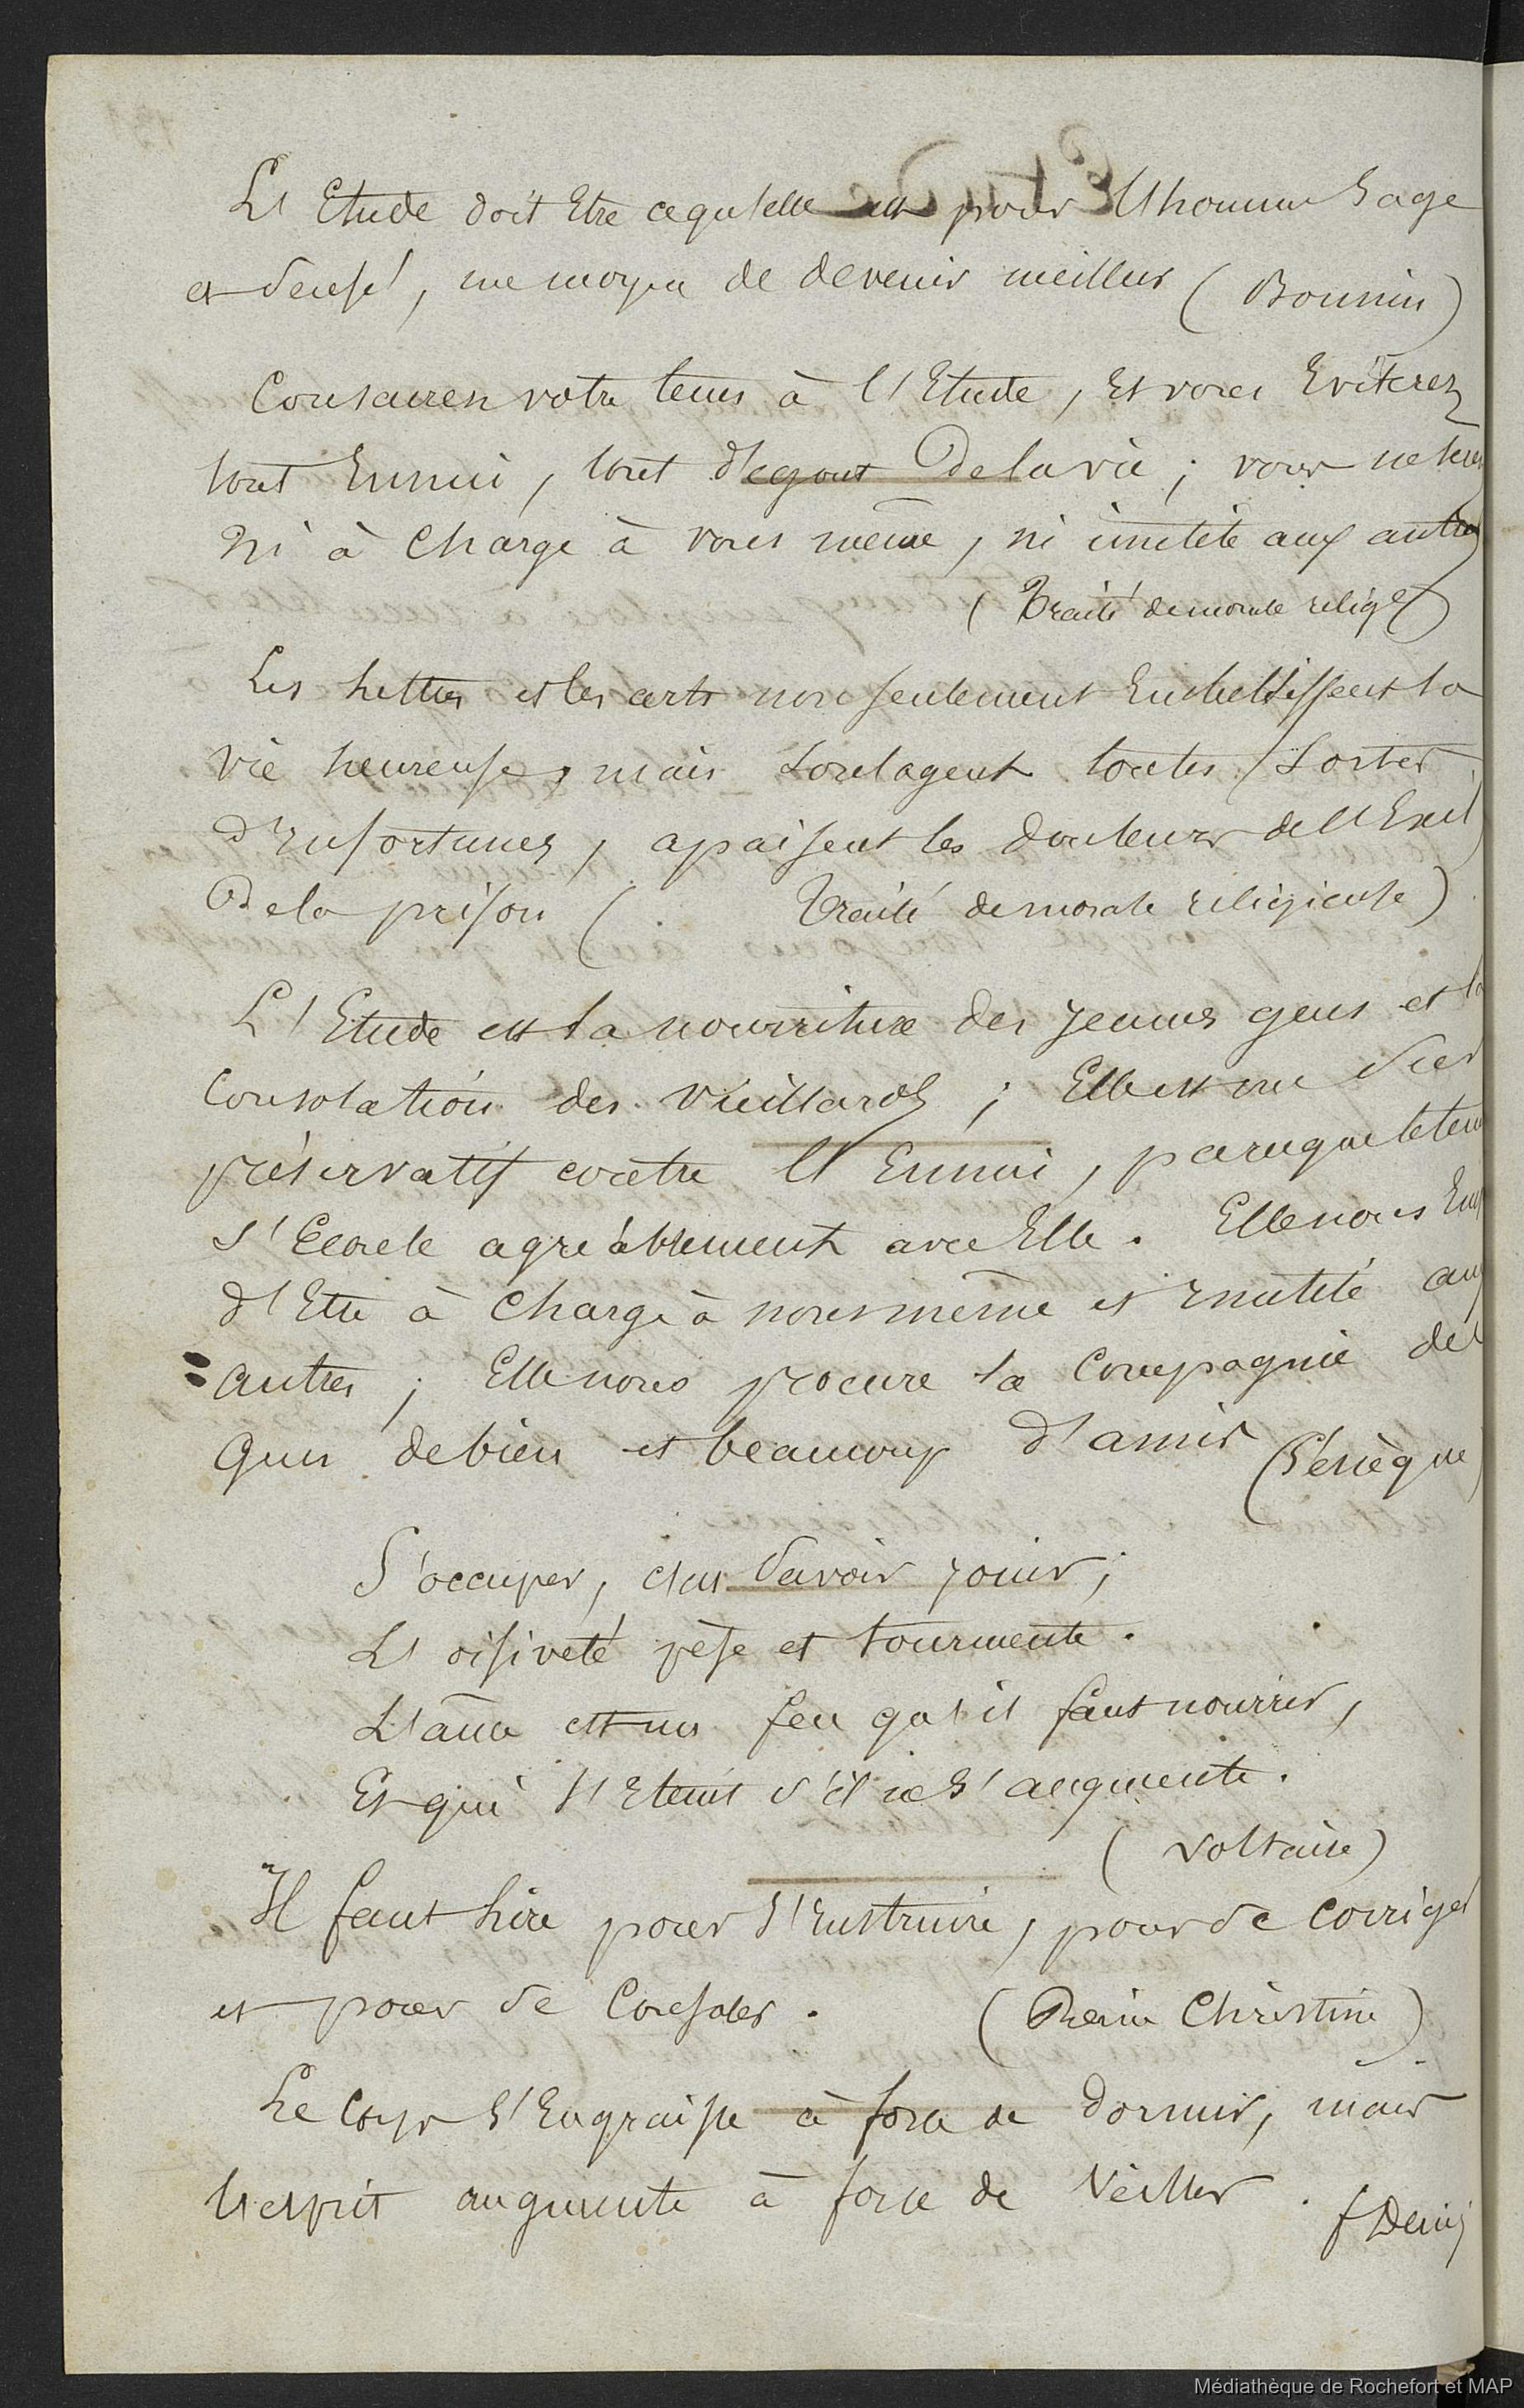 L'Etude doit Etre ce qu'elle est pour l'homme Sage
et Sensé, un moyen de devenir meilleur (Bonnin)
Consacrez votre tems à l'Etude, Et vous Eviterez
tout Ennui, tout dégout De la vie ; vous ne serez
ni à Charge à vous même, ni inutile aux autres
(Traité de morale relig.)
Les Lettres et les arts non seulement Embellissent la
vie heureuse, mais Soulagent toutes Sortes
d'Infortunes, apaisent les Douleurs de l'Exil
De la prison ( Traité de morale religieuse)
L'Etude est la nourriture des jeunes gens et la
Consolation des vieillards ; Elle est un Sûr
préservatif contre l'Ennui, parceque le tems
s'Ecoule agréablement avec Elle. Elle nous
d'Etre à Charge à nous même et Inutile aux
autres ; Elle nous procure la Compagnie des
Gens de bien et beaucoup d'amis (Sénèque)
S'occuper, c'est Savoir jouir ;
L'oisiveté pèse et tourmente.
L'âme est un feu qu'il faut nourrir,
Et qui s'Eteint s'il ne s'augmente.
(Voltaire)
Il faut Lire pour s'Instruire, pour se Corriger
et pour se Consoler. (Reine Christine)
Le Corps s'Engraisse à force de Dormir, mais
l'esprit augmente à force de Veiller. f Denis
Médiathèque de Rochefort et MAP